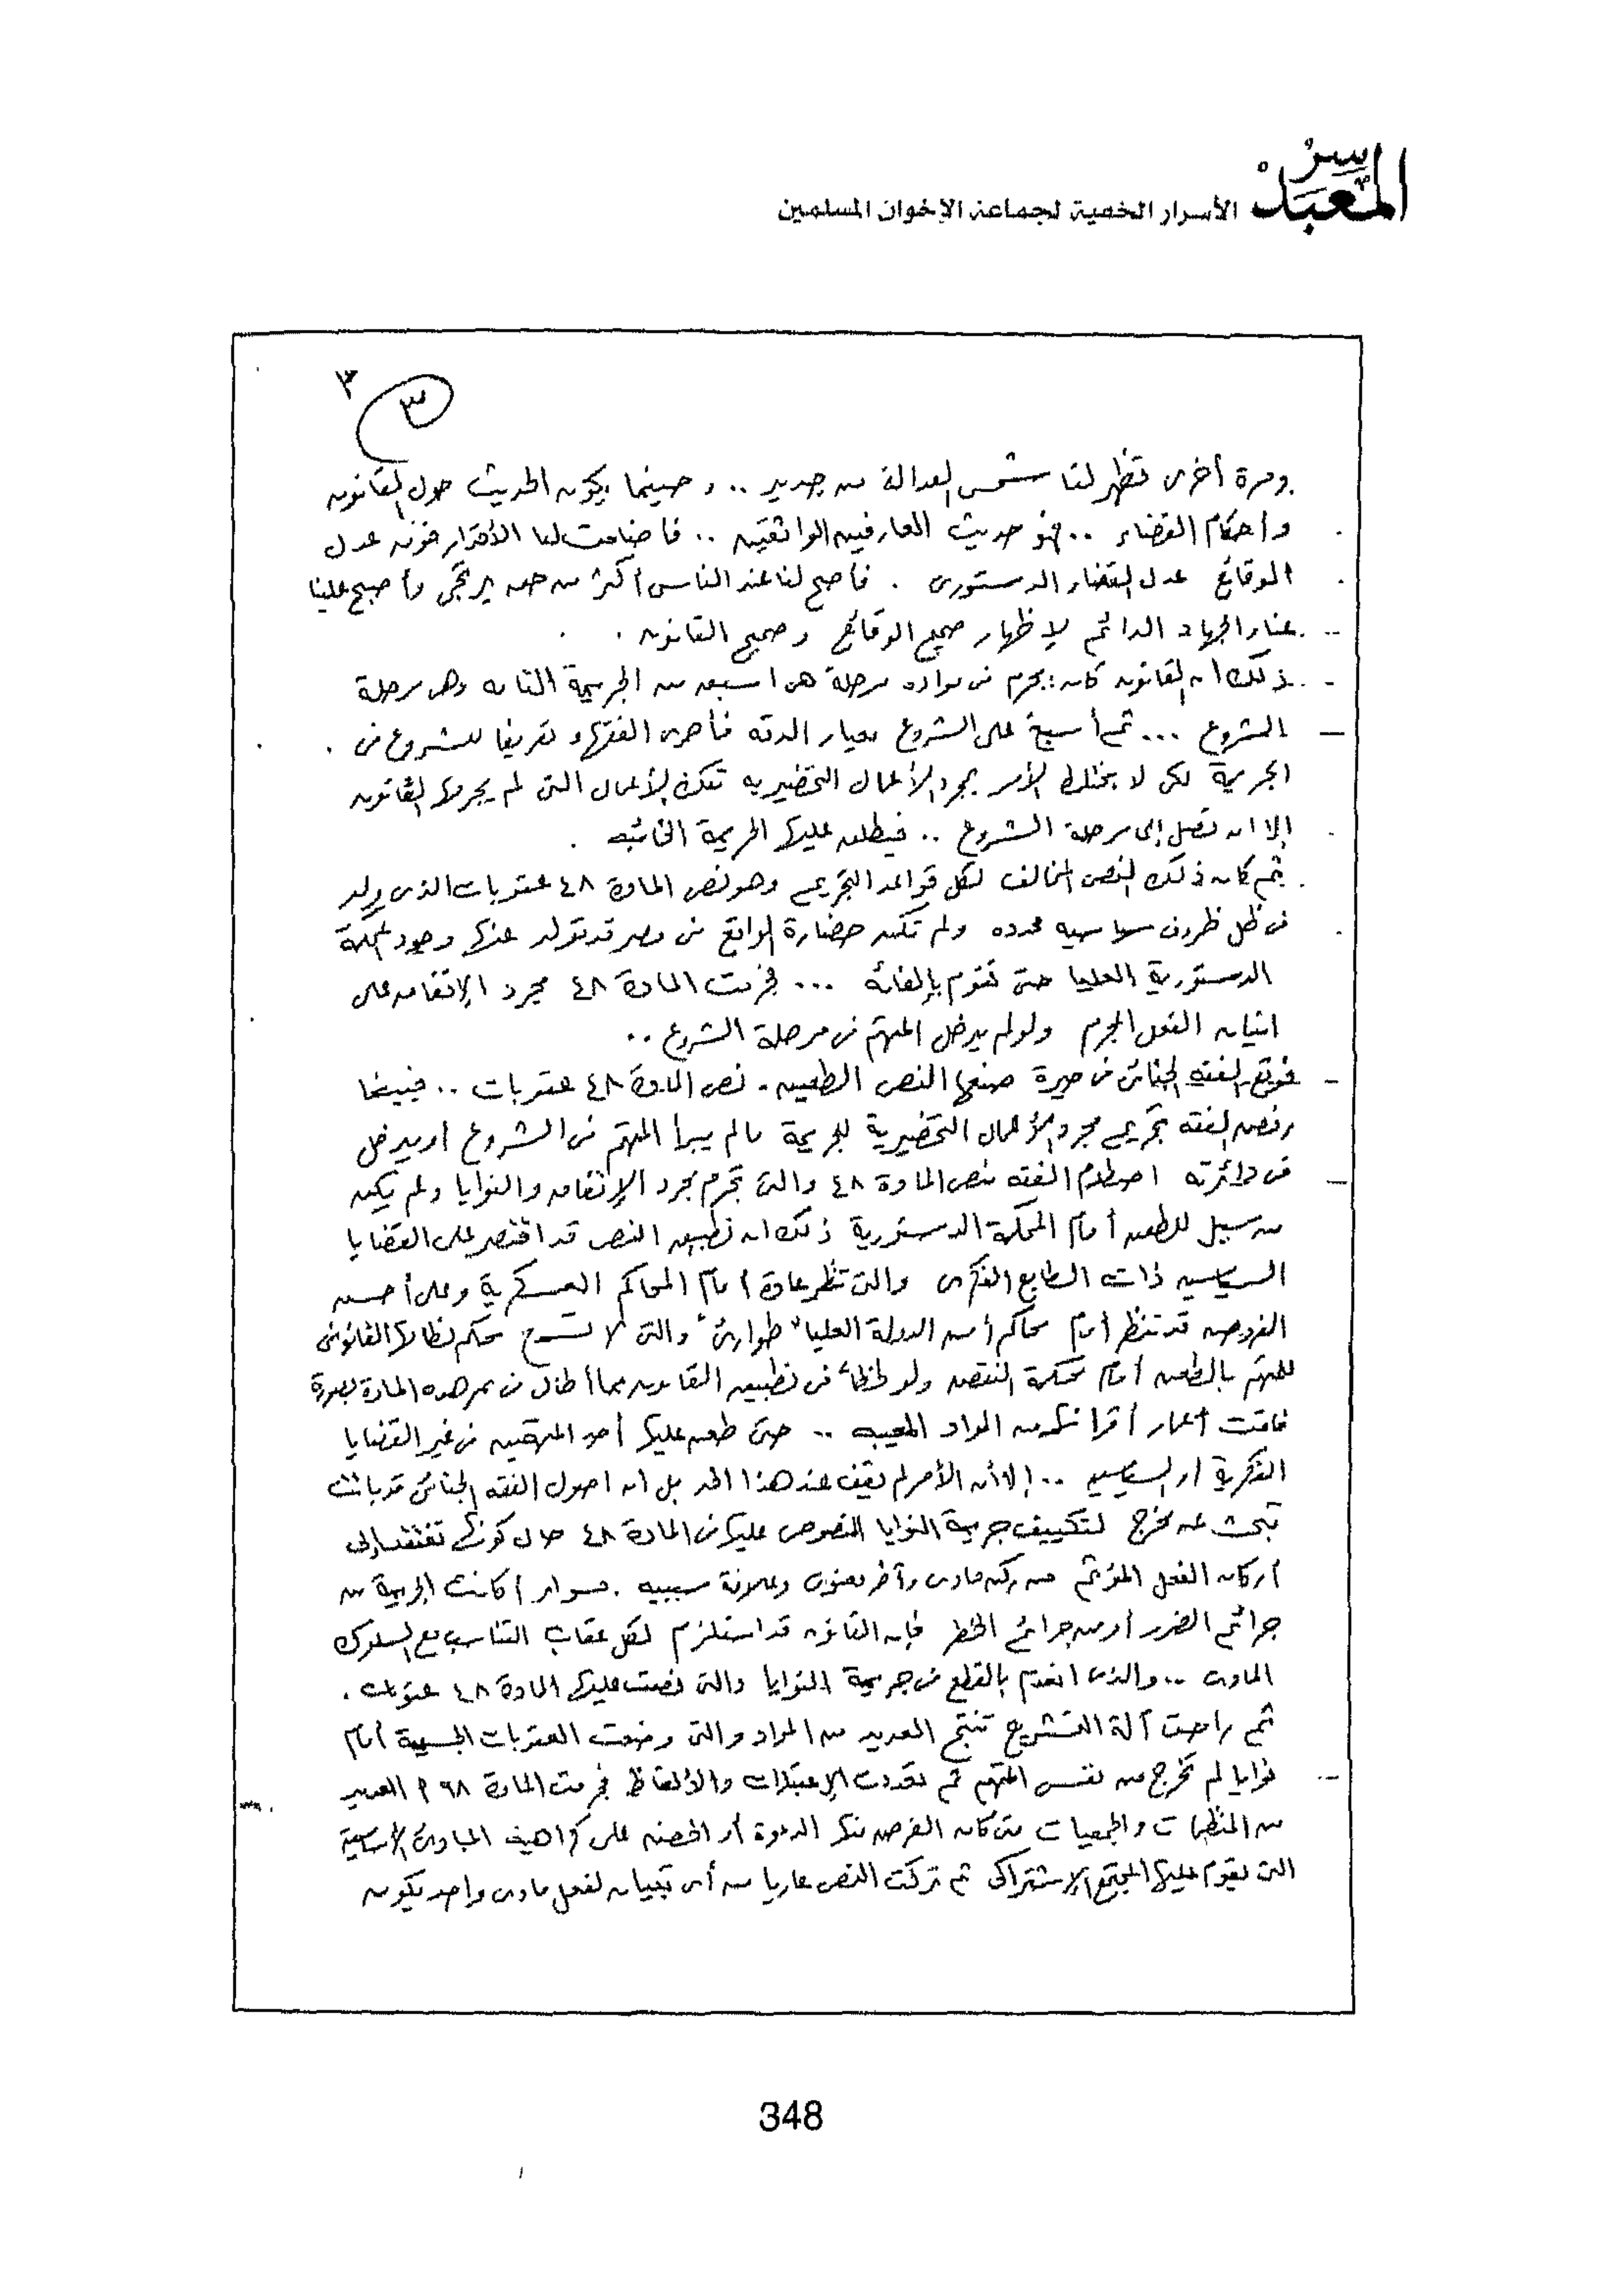 سر
المعبد
الأسرار الخفية لجماعة الإخوان المسلمين
٣
٣
ومرة أخرى تظهر لنا شمس العدالة من جديد .. وحينما يكون الحديث حول القانون
وأحكام القضاء .. فهو حديث العارفين الواثقين .. فأضافت لنا الأقدار فوق عدل
الوقائع عدل القضاء الدستورى . فأصبح لنا عند الناس أكثر من حق يرتجى وأصبح علينا
عناء الجهاد الدائم لإظهار صحيح الوقائع وصحيح القانون .
ذلك ان القانون كان يجرم فى مواده مرحلة هى اسبق من الجريمة التامه وهى مرحلة
الشروع ... ثم أسبغ على الشروع معيار الدقه فأجرى الفقهاء تعريفا للشروع فى
الجريمة لكى لا يختلط الأمر بمجرد الأعمال التحضيريه تلك الأعمال التى لم يجرمها القانون
إلا ان تصل إلى مرحلة الشروع .. فيطلق عليها الجريمة الخائبه .
ثم كان ذلك النص المخالف لكل قواعد التجريم وهو نص المادة ٤٨ عقوبات الذى ولد
فى ظل ظروف سياسيه محدده ولم تكن حضارة الواقع فى مصر قد تولد عنها وجود المحكمة
الدستورية العليا حتى تقوم بإلغائه ... فجرمت المادة ٤٨ مجرد الإتفاق على
اتيان الفعل المجرم ولو لم يدخل المتهم فى مرحلة الشروع ..
فوقع الفقه الجنائى فى حيرة صنعها النص الطعين - نص المادة ٤٨ عقوبات .. فبينما
رفض الفقه تجريم مجرد الأعمال التحضيرية للجريمة مالم يبدأ المتهم فى الشروع او يدخل
فى دائرته اصطدم الفقه بنص المادة ٤٨ والتى تجرم مجرد الإتفاق والنوايا ولم يكن
من سبيل للطعن أمام المحكمة الدستورية ذلك ان تطبيق النص قد اقتصر على القضايا
السياسيه ذات الطابع الفكرى والتى تنظر عادة أمام المحاكم العسكرية وعلى أحسن
الفروض قد تنظر أمام محاكم أمن الدولة العليا "طوارئ" والتى لا تسمح بحكم نظامها القانونى
للمتهم بالطعن أمام محكمة النقض ولو لخطأ فى تطبيق القانون مما أطال فى عمر هذه المادة بصورة
فاقت أعمار أقرانها من المواد المعيبه .. حتى طعن عليها أحد المتهمين فى غير القضايا
الفكرية او السياسيه .. إلا أن الأمر لم يقف عند هذا الحد بل ان اصول الفقه الجنائى قد باتت
تبحث عن مخرج لتكييف جريمة النوايا المنصوص عليها فى المادة ٤٨ حال كونها تفتقد إلى
أركان الفعل المؤثم من ركن مادى وآخر معنوى وعلاقة سببيه . سواء أكانت الجريمة من
جرائم الضرر أو من جرائم الخطر فإن القانون قد استلزم لكل عقاب التناسب مع السلوك
المادى .. والذى انعدم بالقطع فى جريمة النوايا والتى نصت عليها المادة ٤٨ عقوبات .
ثم راحت آلة التشريع تنتج العديد من المواد والتى وضعت العقوبات الجسيمة أمام
نوايا لم تخرج من نفس المتهم ثم تعددت الإعتبارات والألفاظ فجرمت المادة ٩٨ أ العديد
من المنظمات والجمعيات متى كان الغرض منها الدعوة أو الحض على كراهية المبادئ الأساسية
التى يقوم عليها المجتمع الإشتراكى ثم تركت النص عاريا من أى تبيان لفعل مادى واحد يكون
348